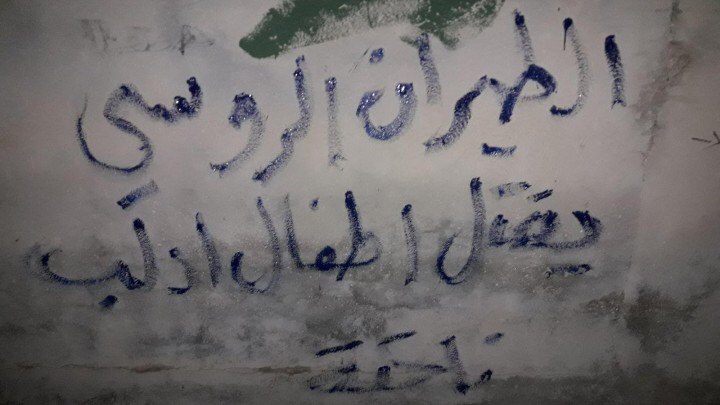 الطيران الروسي
يقتل اطفال ادلب